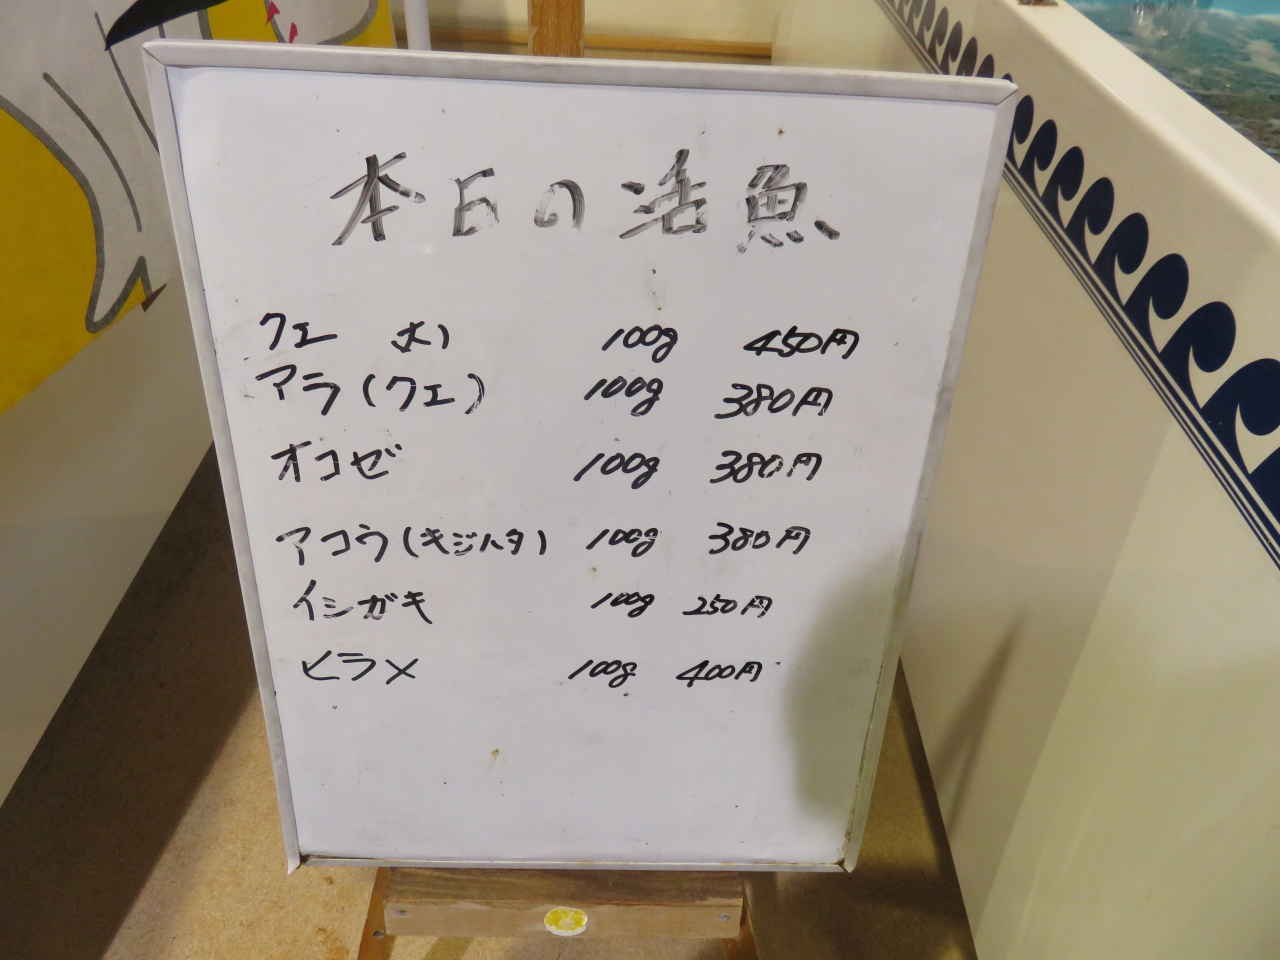 本日の活魚
クエ 大 100g 450円
アラ(クエ) 100g 380円
オコゼ 100g 380円
アコウ(キジハタ) 100g 380円
イシガキ 100g 250円
ヒラメ 100g 400円